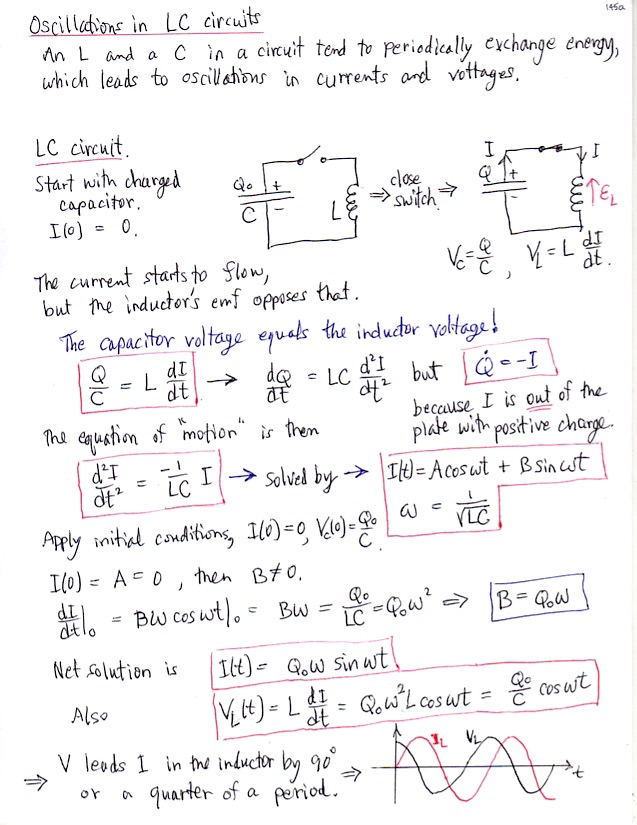 145a
Oscillations in LC circuits
An L and a C in a circuit tend to periodically exchange energy,
which leads to oscillations in currents and voltages.
LC circuit.
Start with charged
capacitor.
I(0) = 0.
Q₀ + − C L
⇒ close switch ⇒
I I Q + − ↑ε_L
V_C = Q/C , V_L = L dI/dt.
The current starts to flow,
but the inductor's emf opposes that.
The capacitor voltage equals the inductor voltage!
Q/C = L dI/dt → dQ/dt = LC d²I/dt² but Q̇ = −I
because I is out of the
plate with positive charge.
The equation of "motion" is then
d²I/dt² = −1/LC I → solved by → I(t) = A cos ωt + B sin ωt
ω = 1/√LC
Apply initial conditions, I(0)=0, V_C(0)=Q₀/C.
I(0) = A = 0 , then B ≠ 0.
dI/dt|₀ = Bω cos ωt|₀ = Bω = Q₀/LC = Q₀ω² ⇒ B = Q₀ω
Net solution is I(t) = Q₀ω sin ωt
Also V_L(t) = L dI/dt = Q₀ω²L cos ωt = Q₀/C cos ωt
⇒ V leads I in the inductor by 90° ⇒
or a quarter of a period.
I_L V_L t